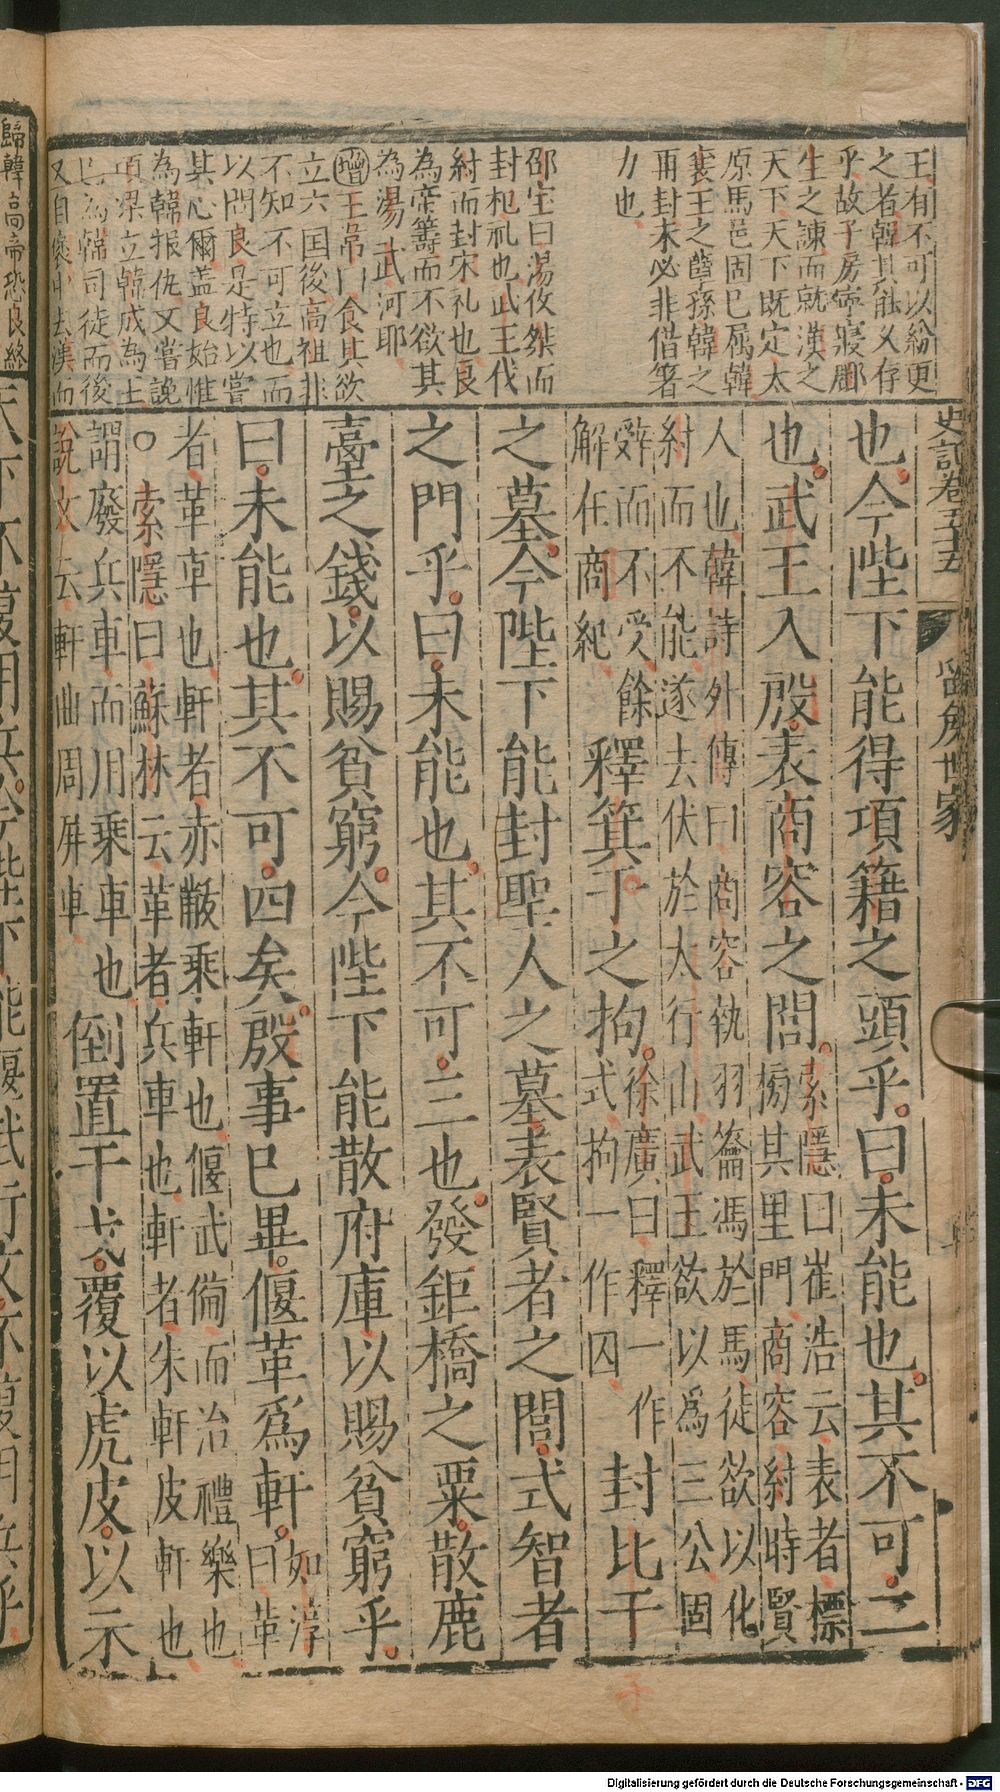 王有不可以紛更
之者韓其能又存
乎故子房寧寢酈
生之諫而就漢之
天下天下既定太
原馬邑固已屬韓
襄王之孽孫韓之
再封未必非借箸
力也
邵宝曰湯伐桀而
封杞礼也武王伐
紂而封宋礼也良
為帝籌而不欲其
為湯武河耶
增王帛曰食其欲
立六国後高祖非
不知不可立也而
以問良是特以嘗
其心爾盖良始惟
為韓报仇又嘗說
項梁立韓成為王
已為韓司徒而後
又自懷中去漢而
史記卷五十五 留侯世家
也今陛下能得項籍之頭乎曰未能也其不可二
也武王入殷表商容之閭索隱曰崔浩云表者標
榜其里門商容紂時賢
人也韓詩外傳曰商容執羽籥馮於馬徒欲以化
紂而不能遂去伏於太行山武王欲以爲三公固
辭而不受餘
解在商紀釋箕子之拘徐廣曰釋一作
式拘一作囚封比干
之墓今陛下能封聖人之墓表賢者之閭式智者
之門乎曰未能也其不可三也發鉅橋之粟散鹿
臺之錢以賜貧窮今陛下能散府庫以賜貧窮乎
曰未能也其不可四矣殷事已畢偃革爲軒如淳
曰革
者革車也軒者赤黻乘軒也偃武備而治禮樂也
○索隱曰蘇林云革者兵車也軒者朱軒皮軒也
謂廢兵車而用乘車也
說文云軒曲周屏車倒置干戈覆以虎皮以示
歸韓高帝恐良終
天下不復用兵今陛下能偃武行文不復用兵乎
Digitalisierung gefördert durch die Deutsche Forschungsgemeinschaft - DFG